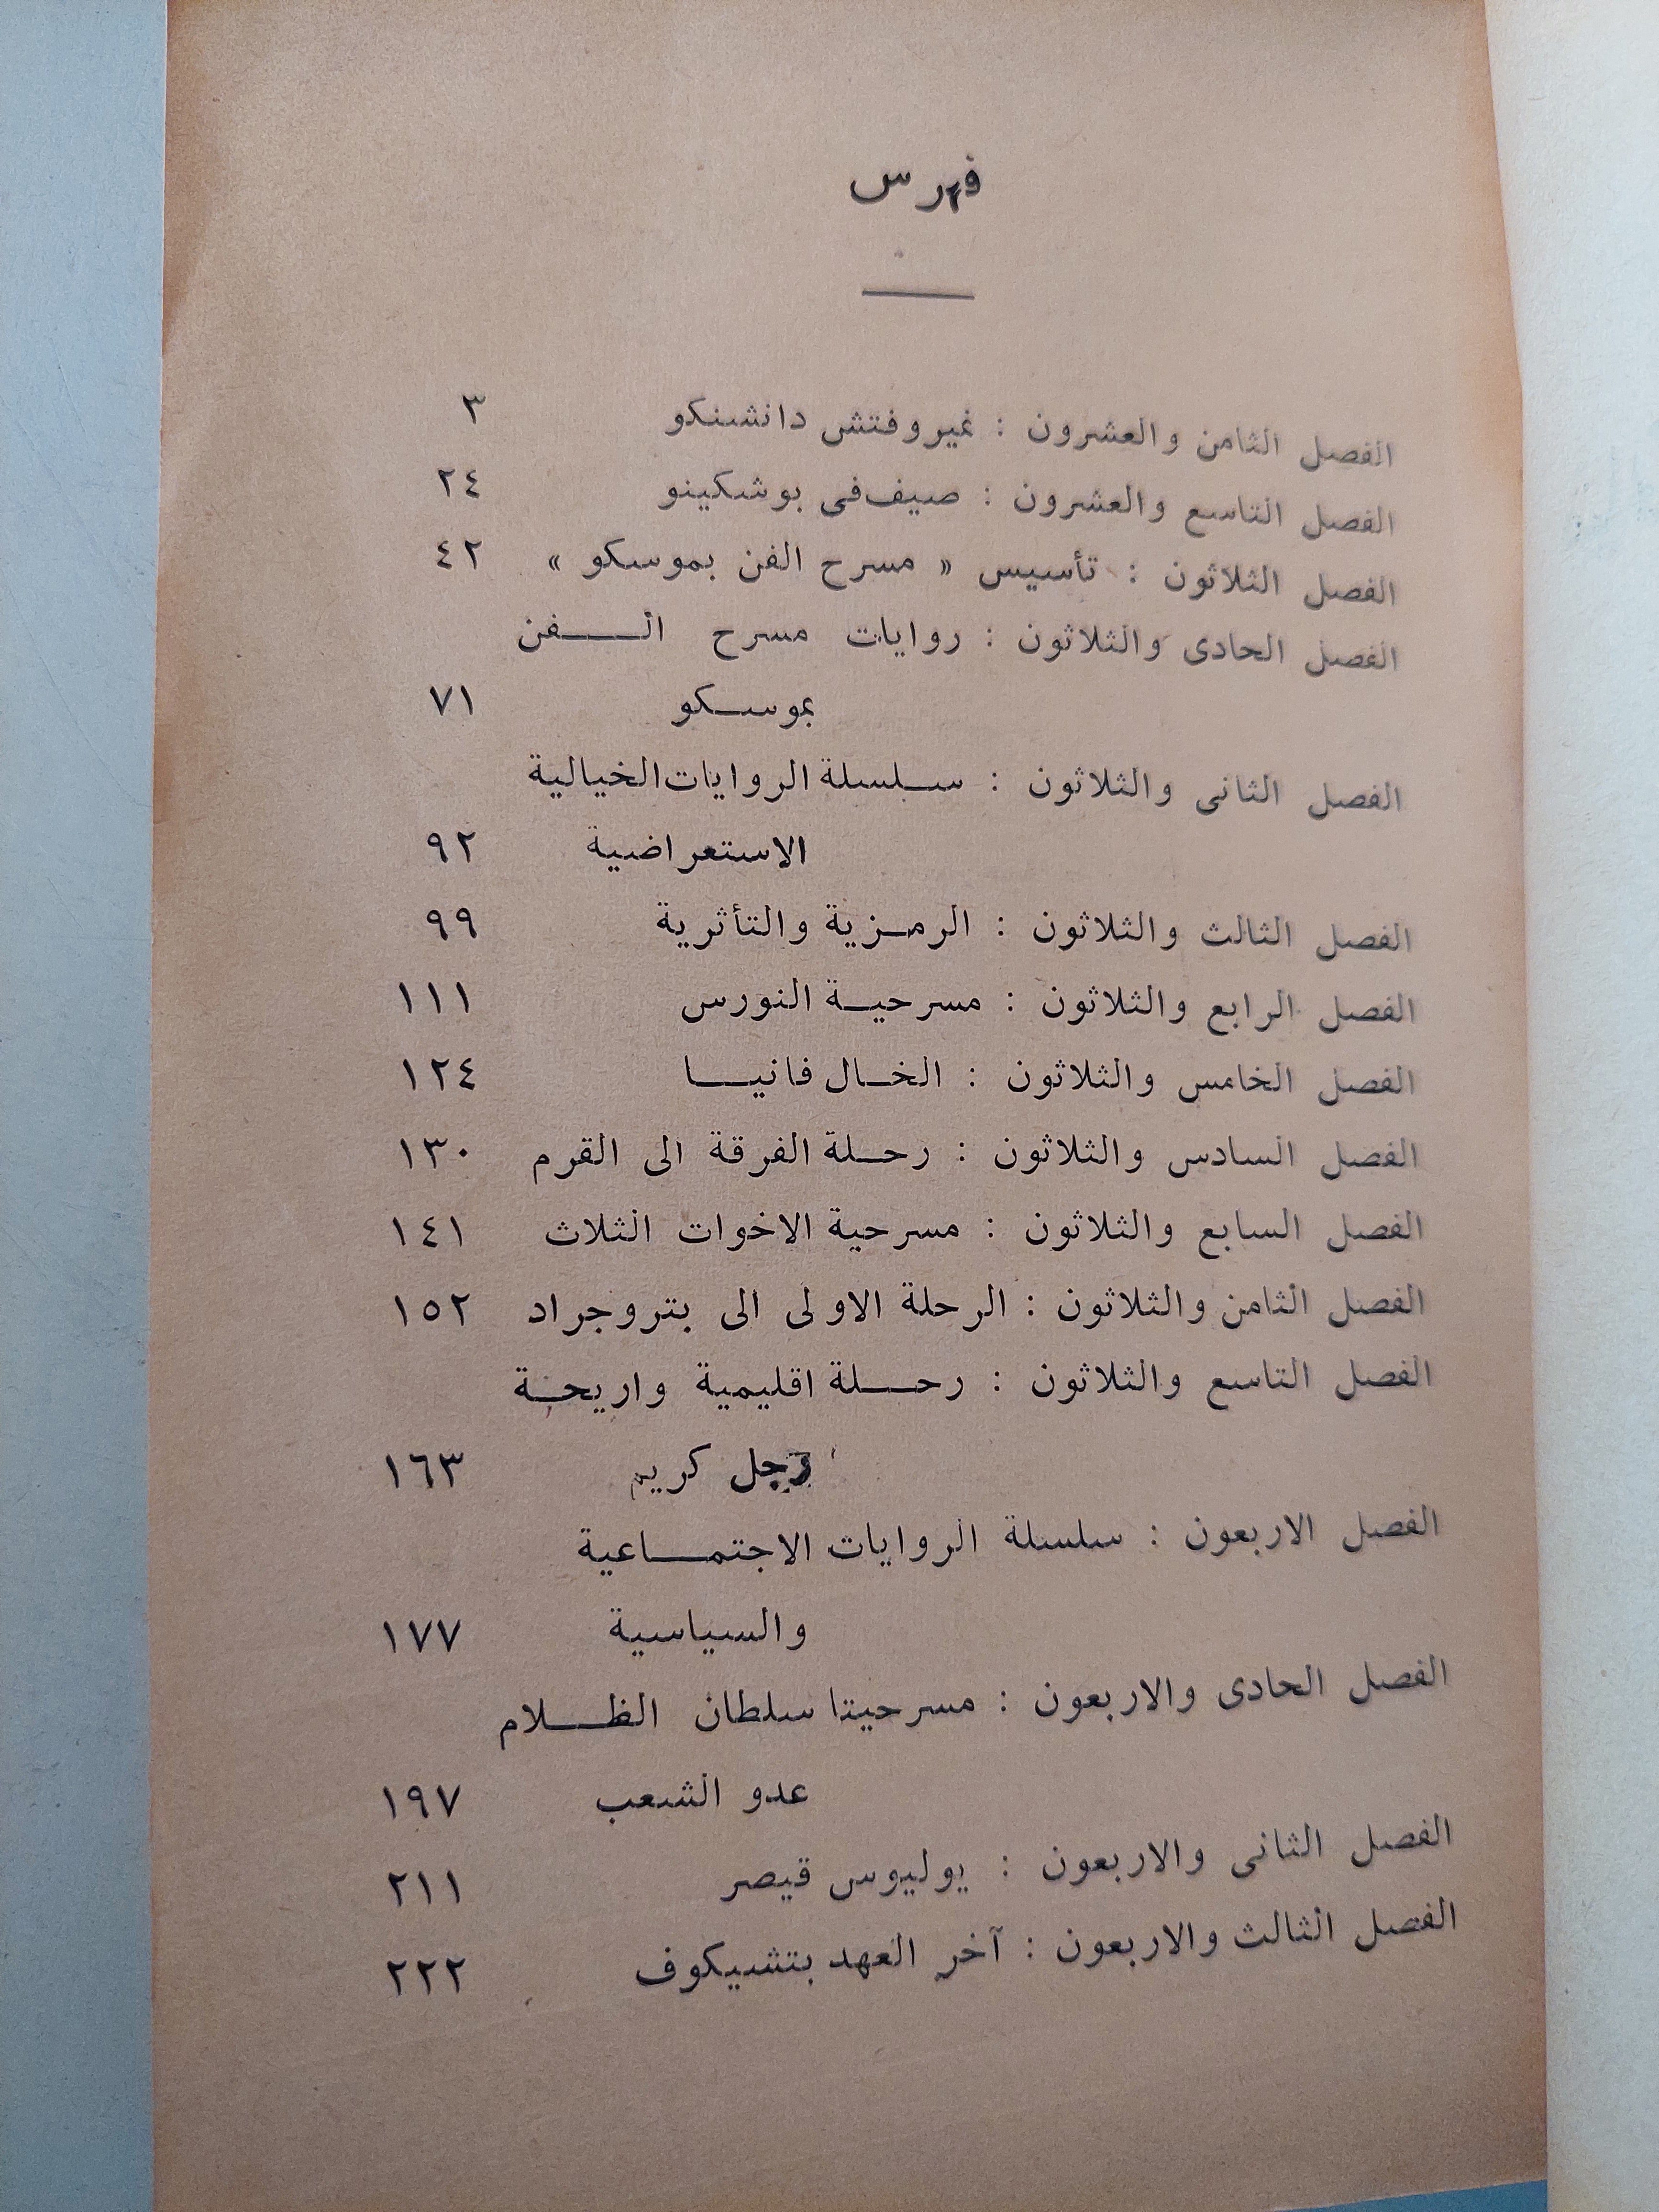 فهرس
الفصل الثامن والعشرون : نميروفتش دانشنكو ٣
الفصل التاسع والعشرون : صيف فى بوشكينو ٢٤
الفصل الثلاثون : تأسيس « مسرح الفن بموسكو » ٤٢
الفصل الحادى والثلاثون : روايات مسرح الفن
بموسكو ٧١
الفصل الثانى والثلاثون : سلسلة الروايات الخيالية
الاستعراضية ٩٢
الفصل الثالث والثلاثون : الرمزية والتأثرية ٩٩
الفصل الرابع والثلاثون : مسرحية النورس ١١١
الفصل الخامس والثلاثون : الخال فانيا ١٢٤
الفصل السادس والثلاثون : رحلة الفرقة الى القرم ١٣٠
الفصل السابع والثلاثون : مسرحية الاخوات الثلاث ١٤١
الفصل الثامن والثلاثون : الرحلة الاولى الى بتروجراد ١٥٢
الفصل التاسع والثلاثون : رحلة اقليمية واريحة
رجل كريم ١٦٣
الفصل الاربعون : سلسلة الروايات الاجتماعية
والسياسية ١٧٧
الفصل الحادى والاربعون : مسرحيتا سلطان الظلام
عدو الشعب ١٩٧
الفصل الثانى والاربعون : يوليوس قيصر ٢١١
الفصل الثالث والاربعون : آخر العهد بتشيكوف ٢٢٢